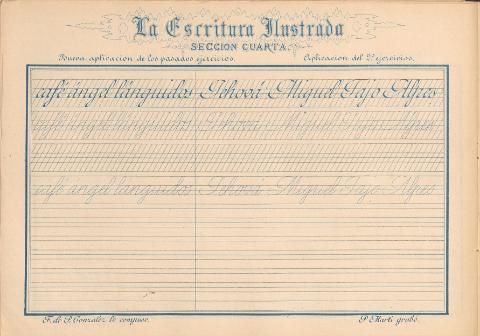 La Escritura Ilustrada
SECCION CUARTA.
Nueva aplicacion de los pasados ejercicios. Aplicacion del 2º ejercicios.
café ángel lánguidos Jehová Miguel Tajo Alpes
café ángel lánguidos Jehová Miguel Tajo Alpes
café ángel lánguidos Jehová Miguel Tajo Alpes
F. de P. Gonzalez lo compuso. P. Marti grabó.